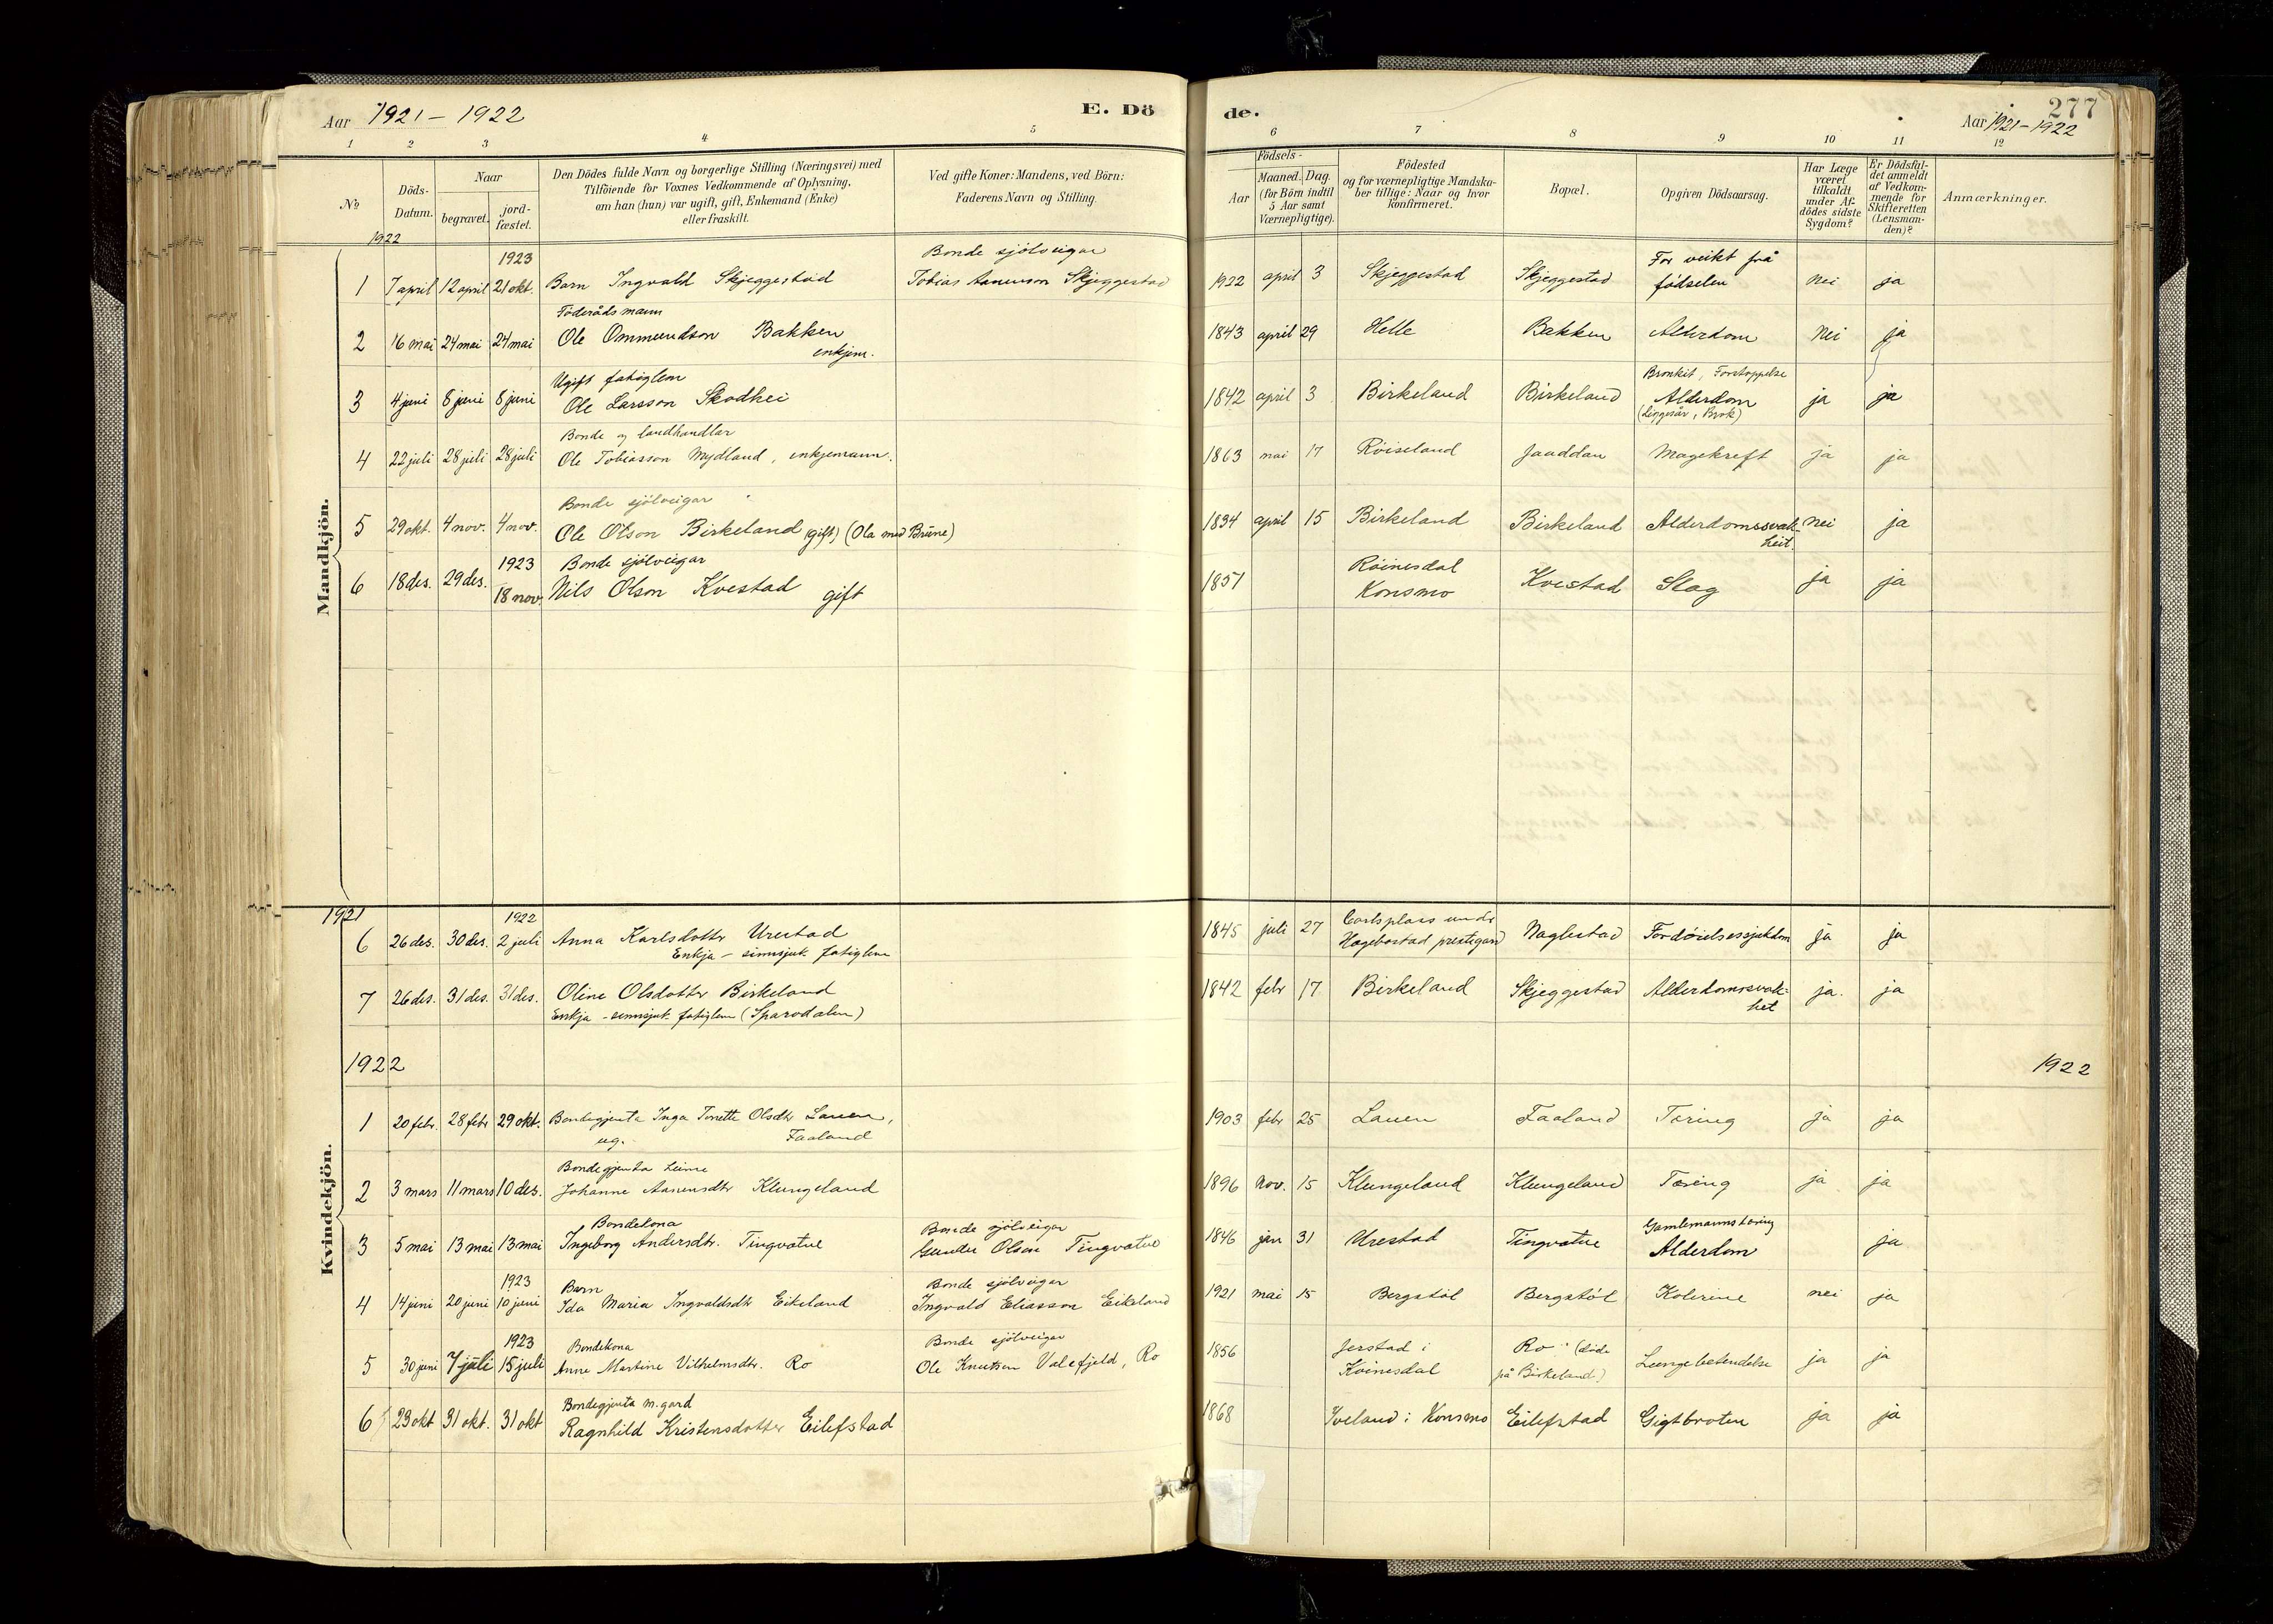 Aar 1921 – 1922
E. Dö
de.
277
Aar 1921–1922
1 2 3 4 5 6 7 8 9 10 11 12
No
Döds-
Datum.
Naar
begravet.
jord-
fæstet.
Den Dödes fulde Navn og borgerlige Stilling (Næringsvei) med
Tilföiende for Voxnes Vedkommende af Oplysning,
om han (hun) var ugift, gift, Enkemand (Enke)
eller fraskilt.
Ved gifte Koner: Mandens, ved Börn:
Faderens Navn og Stilling.
Födsels-
Aar
Maaned. Dag.
(for Börn indtil
5 Aar samt
Værnepligtige).
Födested
og for værnepligtige Mandska-
ber tillige: Naar og hvor
konfirmeret.
Bopæl.
Opgiven Dödsaarsag.
Har Læge
været
tilkaldt
under Af-
dödes sidste
Sygdom?
Er Dödsfal-
det anmeldt
af Vedkom-
mende for
Skifteretten
(Lensman-
den)?
Anmærkninger.
Mandkjön.
1922
1923 Bonde sjölveigar For veikt frå
1 7 april 12 april 21 okt. Barn Ingvald Skjeggestad Tobias Aanenson Skjeggestad 1922 april 3 Skjeggestad Skjeggestad födselen nei ja
Föderådsmann
2 16 mai 24 mai 24 mai Ole Ommundson Bakken 1843 april 29 Helle Bakken Alderdom Nei ja
enkjem.
Ugift fatiglem Bronkit, Forstoppelse
3 4 juni 8 juni 8 juni Ole Larsson Skodhei 1842 april 3 Birkeland Birkeland Alderdom ja ja
(Liggesår, Brok)
Bonde og landhandlar
4 22 juli 28 juli 28 juli Ole Tobiasson Mydland, enkjemann. 1863 mai 17 Röiseland Jaaddan Magekreft ja ja
Bonde sjölveigar
5 29 okt. 4 nov. 4 nov. Ole Olson Birkeland (gift) (Ola med Brune) 1834 april 15 Birkeland Birkeland Alderdomssvak- nei ja
heit.
1923 Bonde sjölveigar Röinesdal
6 18 des. 29 des. 18 nov. Nils Olson Kvestad gift 1851 Konsmo Kvestad Slag ja ja
Kvindekjön.
1921
1922 Carlsplass under
6 26 des. 30 des. 2 juli Anna Karlsdotter Urestad 1845 juli 27 Hægebostad prestigard Naglestad Fordöielsessjukdom ja ja
Enkja – sinnsjuk fatiglem
7 26 des. 31 des. 31 des. Oline Olsdotter Birkeland 1842 febr 17 Birkeland Skjeggestad Alderdomssvak- ja. ja
Enkja – sinnsjuk fatiglem (Sparodalen) het
1922
1922
1 20 febr. 28 febr 29 okt. Bondegjenta Inga Tonette Olsdtr Lauen, 1903 febr 25 Lauen Faaland Tæring ja ja
ug. Faaland
Bondegjenta
2 3 mars 11 mars 10 des. Johanne Aanensdtr Klungeland 1896 nov. 15 Klungeland Klungeland Tæring ja ja
Bondekona Bonde sjölveigar Gamlemannstæring
3 5 mai 13 mai 13 mai Ingeborg Andersdtr. Tingvatne Gunder Olson Tingvatne 1846 jan 31 Urestad Tingvatne Alderdom ja
1923 Barn Bonde sjölveigar
4 14 juni 20 juni 10 juni Ida Maria Ingvaldsdtr Eikeland Ingvald Eliasson Eikeland 1921 mai 15 Bergstöl Bergstöl Kolerine nei ja
1923 Bondekona Bonde sjölveigar Jerstad i Ro (döde
5 30 juni 7 juli 15 juli Anne Martine Vilhelmsdtr. Ro Ole Knutsen Valefjeld, Ro 1856 Kvinesdal på Birkeland) Lungebetendelse ja ja
Bondegjenta m. gard
6 23 okt 31 okt. 31 okt Ragnhild Kristensdotter Eilefstad 1868 Iveland i Konsmo Eilefstad Gigtbroten ja ja